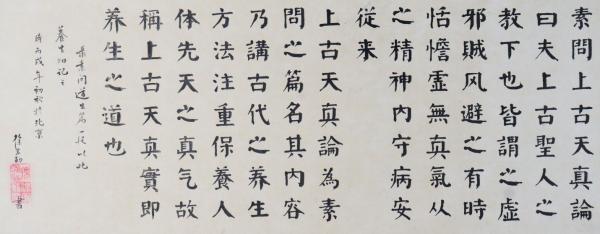 素問上古天真論
曰夫上古聖人之
教下也皆謂之虛
邪賊风避之有時
恬憺虛無真氣从
之精神内守病安
従来
上古天真論為素
問之篇名其内容
乃講古代之养生
方法注重保養人
体先天之真气故
稱上古天真實即
养生之道也
素問生篇一段以此
養生记之
時丙戌年初秋於北京
徐書